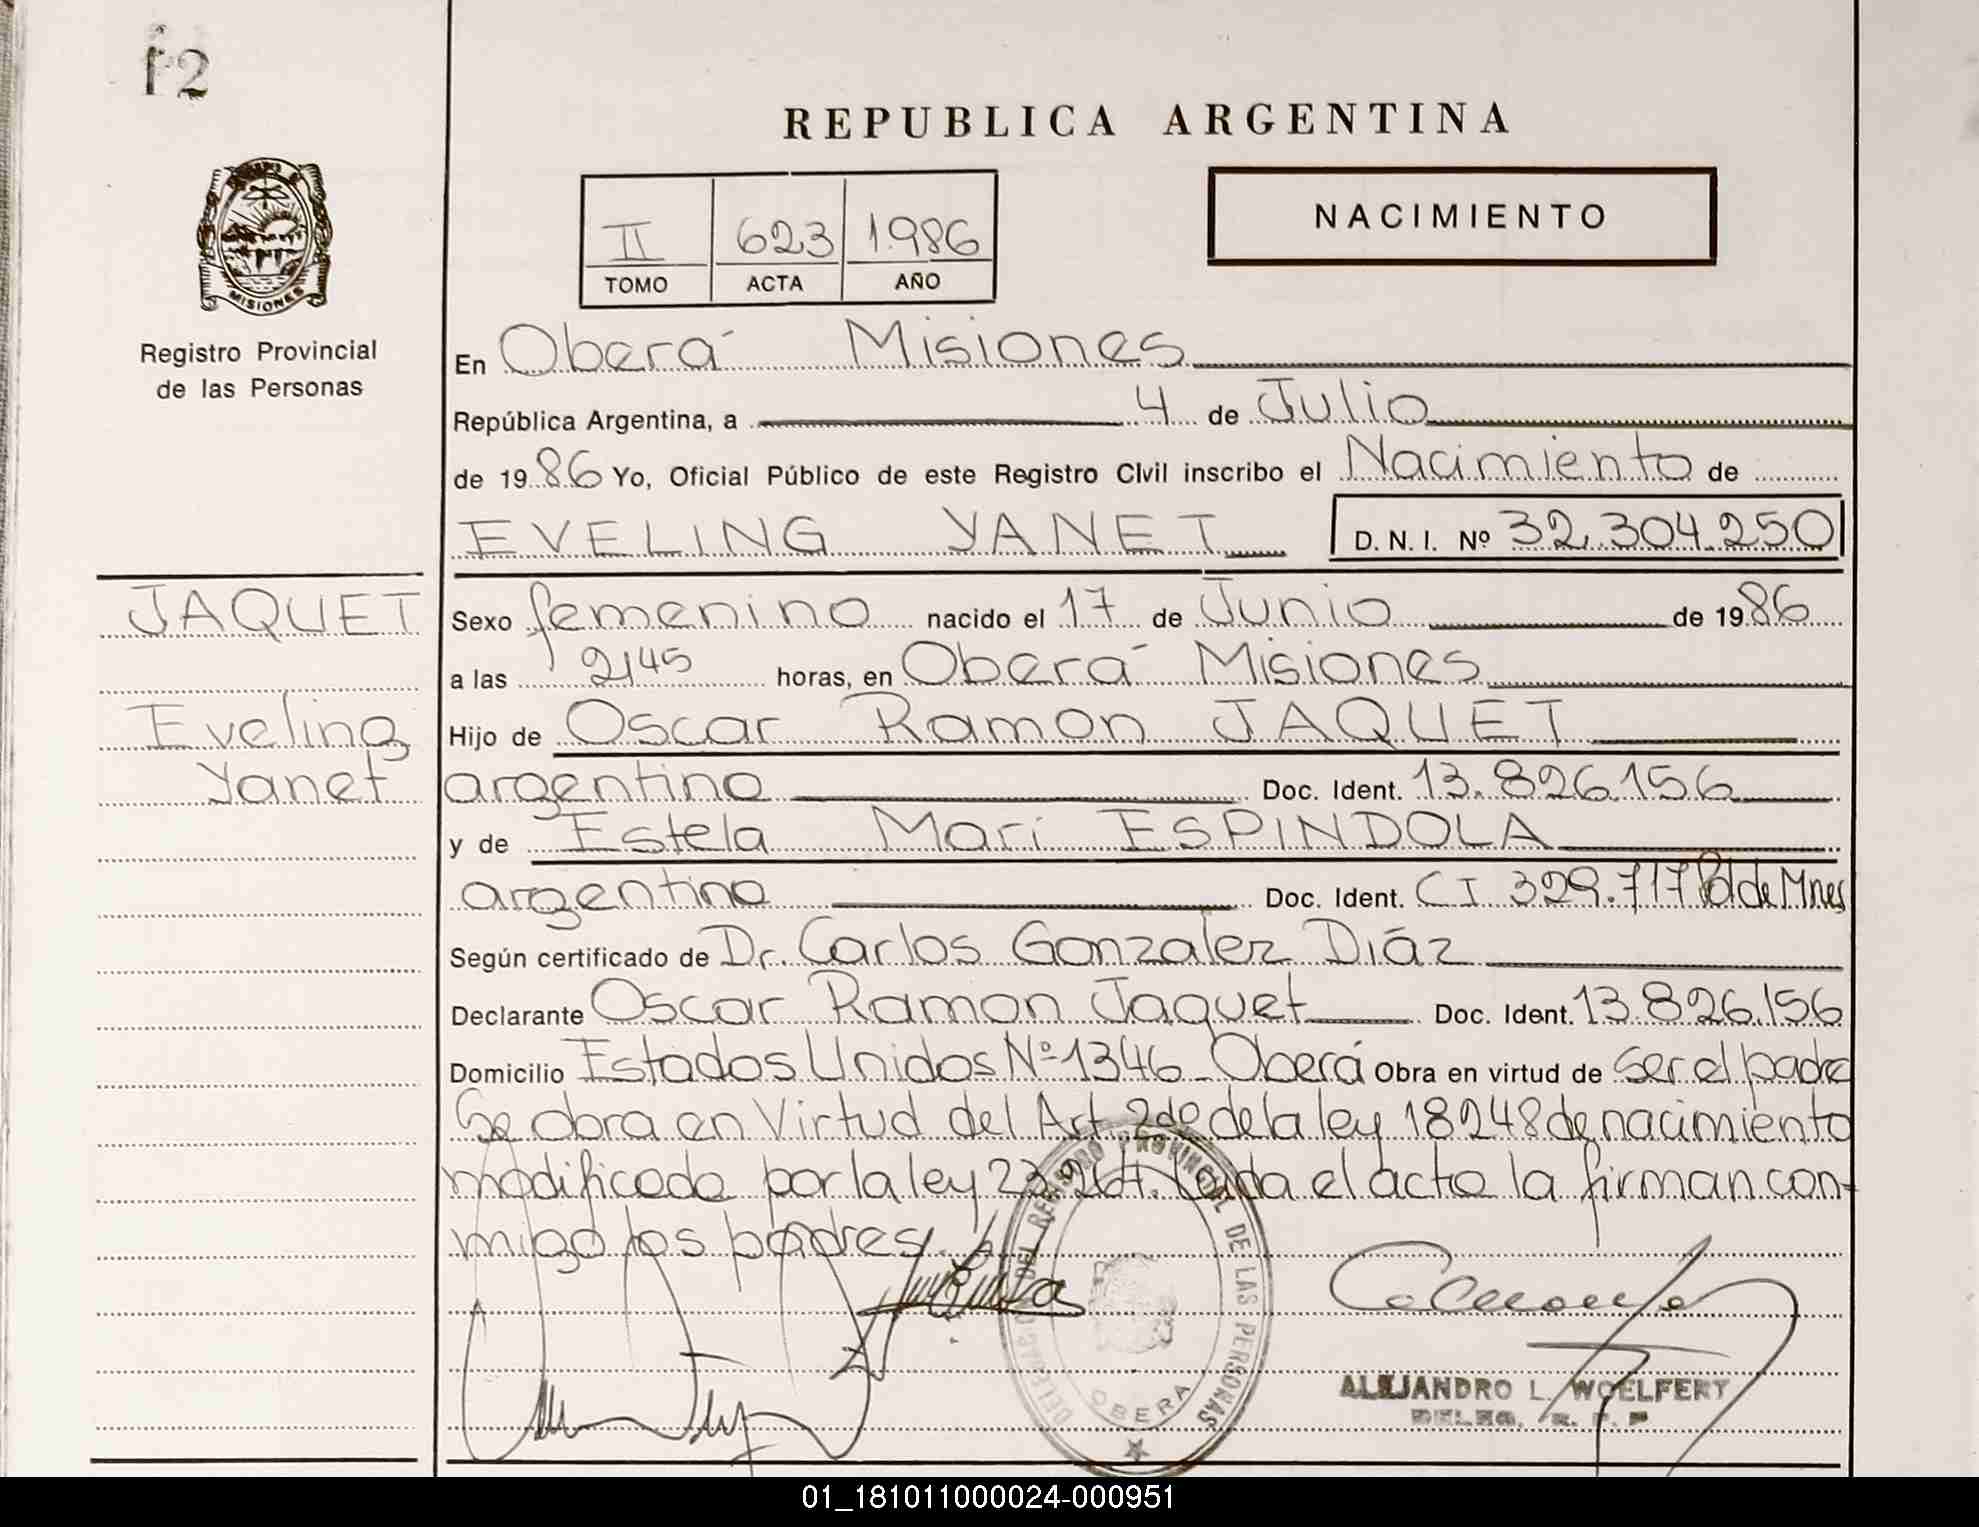 f2
REPUBLICA ARGENTINA
NACIMIENTO
II 623 1.986
TOMO ACTA AÑO
MISIONES
Registro Provincial
de las Personas
En Oberá Misiones
República Argentina, a 4 de Julio
de 1986 Yo, Oficial Público de este Registro Civil inscribo el Nacimiento de
EVELING YANET D. N. I. Nº 32.304.250
JAQUET
Eveling
Yanet
Sexo femenino nacido el 17 de Junio de 1986
a las 2,45 horas, en Oberá Misiones
Hijo de Oscar Ramon JAQUET
argentino Doc. Ident. 13.826.156
y de Estela Mari ESPINDOLA
argentina Doc. Ident. CI 329.717 Pol de Mnes
Según certificado de Dr. Carlos Gonzalez Diáz
Declarante Oscar Ramon Jaquet Doc. Ident. 13.826.156
Domicilio Estados Unidos Nº 1346 - Oberá Obra en virtud de ser el padre
Se obra en Virtud del Art. 2do de la ley 18248 de nacimiento
modificada por la ley 23.264. Leida el acta la firman con-
migo los padres.
DEL REGISTRO PROVINCIAL DE LAS PERSONAS
OBERA
ALEJANDRO L. WOELFERT
DELEG. R. P. P
01_181011000024-000951